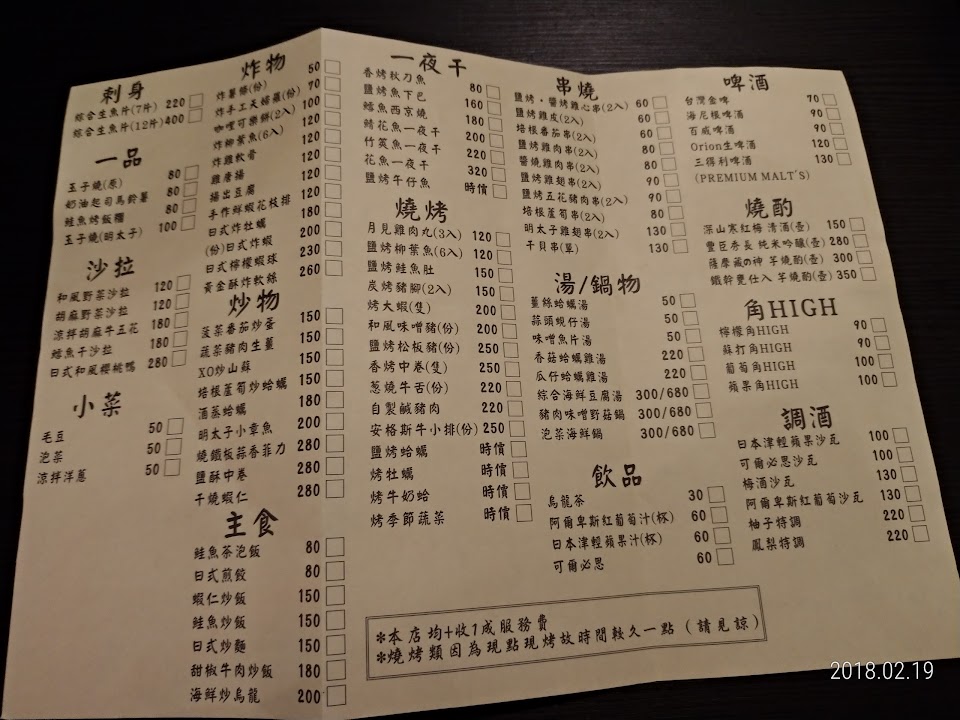 刺身
綜合生魚片(7片) 220
綜合生魚片(12片) 400
一品
玉子燒(原) 80
奶油起司馬鈴薯 80
鮭魚烤飯糰 80
玉子燒(明太子) 100
沙拉
和風野菜沙拉 120
胡麻野菜沙拉 120
涼拌胡麻牛五花 180
鱈魚干沙拉 180
日式和風櫻桃鴨 280
小菜
毛豆 50
泡菜 50
涼拌洋蔥 50
炸物
炸薯條(份) 50
炸手工天婦羅(份) 70
咖哩可樂餅(2入) 100
炸柳葉魚(6入) 120
炸雞軟骨 120
雞唐揚 120
揚出豆腐 120
手作鮮蝦花枝排 120
日式炸牡蠣 180
(份)日式炸蝦 200
日式檸檬蝦球 230
黃金酥炸軟絲 260
炒物
菠菜番茄炒蛋 150
蔬菜豬肉生薑 150
XO炒山蘇 150
培根蘆筍炒蛤蠣 150
酒蒸蛤蠣 180
明太子小章魚 200
燒鐵板蒜香菲力 280
鹽酥中卷 280
干燒蝦仁 280
主食
鮭魚茶泡飯 80
日式煎餃 80
蝦仁炒飯 150
鮭魚炒飯 150
日式炒麵 150
甜椒牛肉炒飯 180
海鮮炒烏龍 200
一夜干
香烤秋刀魚 80
鹽烤魚下巴 160
鱈魚西京燒 180
鯖花魚一夜干 200
竹莢魚一夜干 220
花魚一夜干 320
鹽烤午仔魚 時價
燒烤
月見雞肉丸(3入) 120
鹽烤柳葉魚(6入) 120
鹽烤鮭魚肚 150
炭烤豬腳(2入) 150
烤大蝦(隻) 200
和風味噌豬(份) 200
鹽烤松板豬(份) 250
香烤中卷(隻) 250
蔥燒牛舌(份) 220
自製鹹豬肉 220
安格斯牛小排(份) 250
鹽烤蛤蠣 時價
烤牡蠣 時價
烤牛奶蛤 時價
烤季節蔬菜 時價
串燒
鹽烤・醬烤雞心串(2入) 60
鹽烤雞皮(2入) 60
培根番茄串(2入) 60
鹽烤雞肉串(2入) 80
醬燒雞肉串(2入) 80
鹽烤雞翅串(2入) 90
鹽烤五花豬肉串(2入) 90
培根蘆筍串(2入) 80
明太子雞翅串(2入) 130
干貝串(單) 130
湯/鍋物
薑絲蛤蠣湯 50
蒜頭蜆仔湯 50
味噌魚片湯 50
香菇蛤蠣雞湯 220
瓜仔蛤蠣雞湯 220
綜合海鮮豆腐湯 300/680
豬肉味噌野菇鍋 300/680
泡菜海鮮鍋 300/680
飲品
烏龍茶 30
阿爾卑斯紅葡萄汁(杯) 60
日本津輕蘋果汁(杯) 60
可爾必思 60
啤酒
台灣金啤 70
海尼根啤酒 90
百威啤酒 90
Orion生啤酒 120
三得利啤酒 130
(PREMIUM MALT'S)
燒酌
深山寒紅梅 清酒(壺) 150
豐臣秀長 純米吟釀(壺) 280
薩摩藏の神 芋燒酌(壺) 300
鐵幹甕仕入 芋燒酌(壺) 350
角HIGH
檸檬角HIGH 90
蘇打角HIGH 90
葡萄角HIGH 100
蘋果角HIGH 100
調酒
日本津輕蘋果沙瓦 100
可爾必思沙瓦 100
梅酒沙瓦 130
阿爾卑斯紅葡萄沙瓦 130
柚子特調 220
鳳梨特調 220
*本店均+收1成服務費
*燒烤類因為現點現烤故時間較久一點(請見諒)
2018.02.19